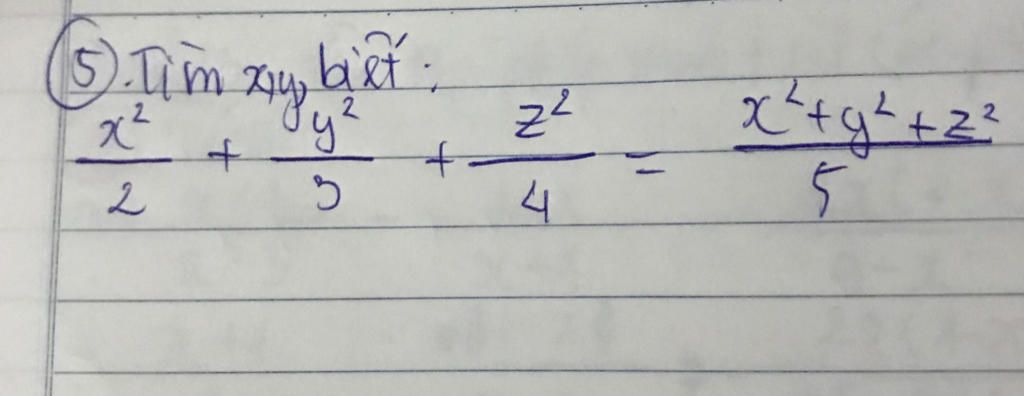 5. Tìm x,y, biết:
x²/2 + y²/3 + z²/4 = x²+y²+z²/5